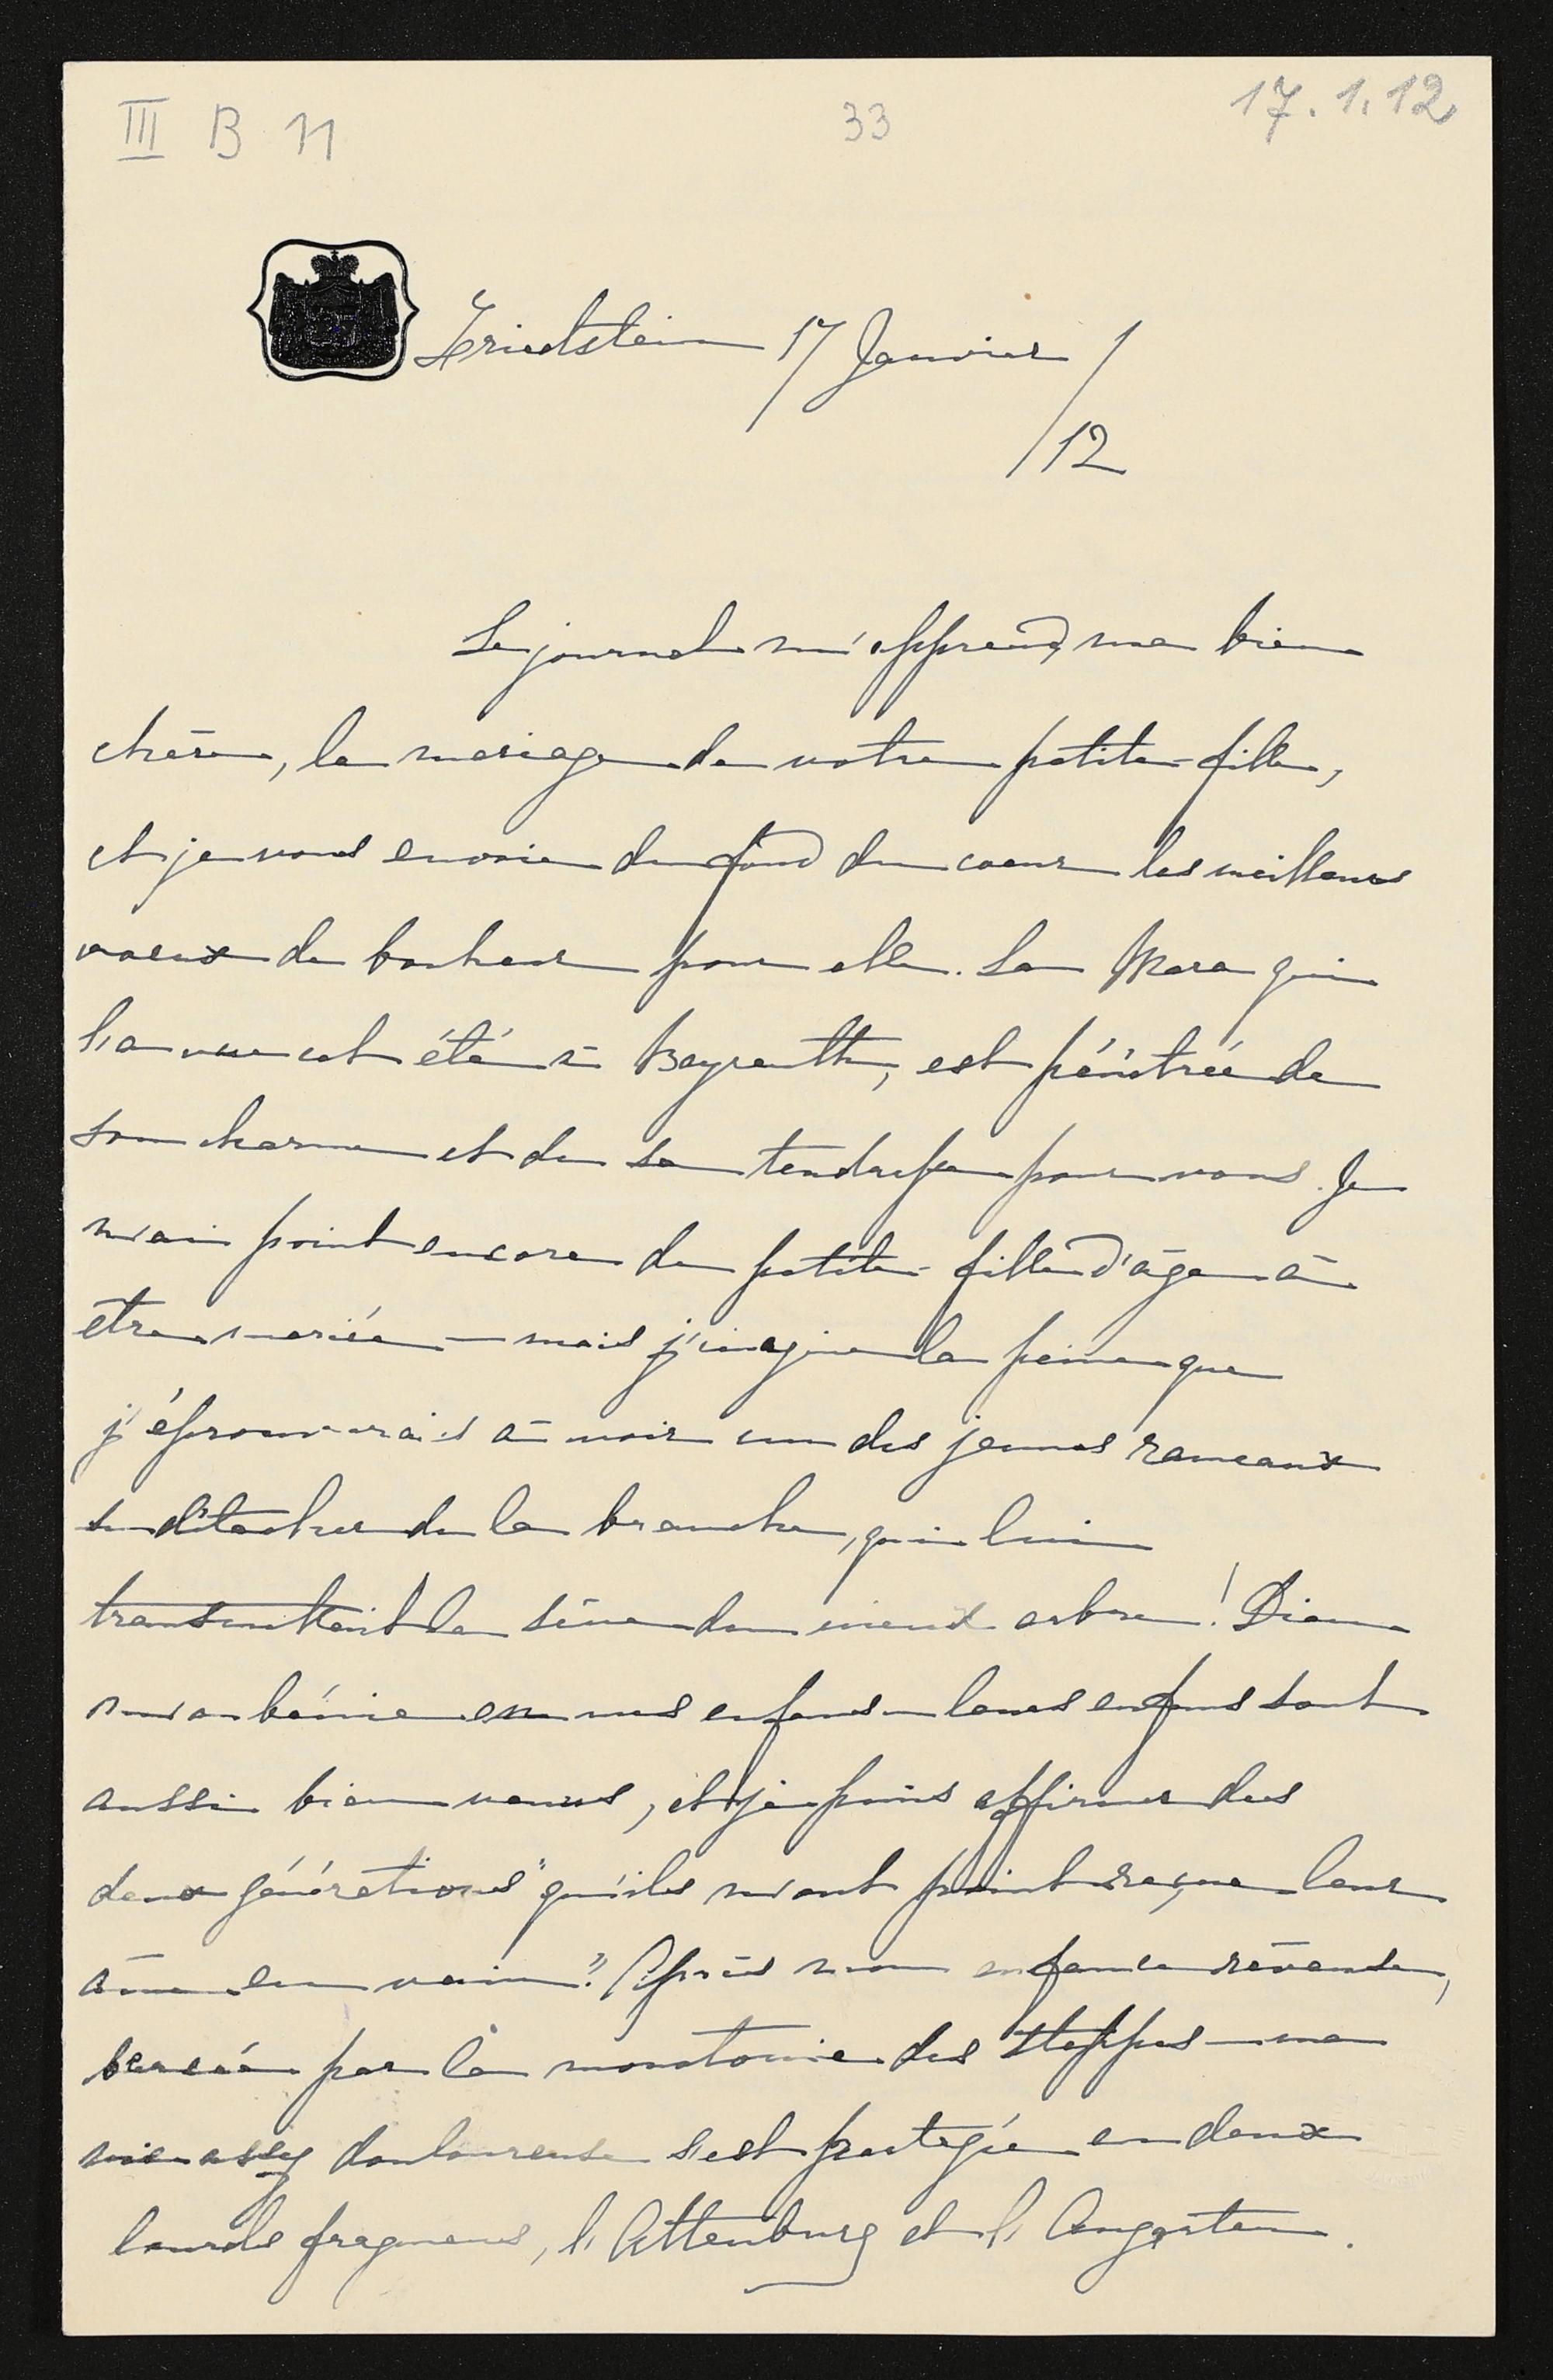 III B 11
33
17.1.12
Friedstein 17 Janvier /
/12
Le journal m'apprend, ma bien
chère, le mariage de votre petite-fille,
et je vous envoie du fond du coeur les meilleurs
voeux de bonheur pour elle. La Mara qui
l'a vue cet été à Bayreuth, est pénétrée de
son charme et de sa tendresse pour vous. Je
n'ai point encore de petite-fille d'âge à
être mariée — mais j'imagine la peine que
j'éprouverais à voir un des jeunes rameaux
se détacher de la branche, qui lui
transmettait la sève du vieux arbre! Dieu
m'a bénie en mes enfans — leurs enfans sont
aussi bien venus, et je puis affirmer des
deux générations "qu'ils n'ont point reçu leur
âme en vain". Après mon enfance rêveuse,
bercée par la monotonie des steppes — ma
vie assez douloureuse s'est partagée en deux
lourds fragmens, l'Altenburg et l'Augarten.